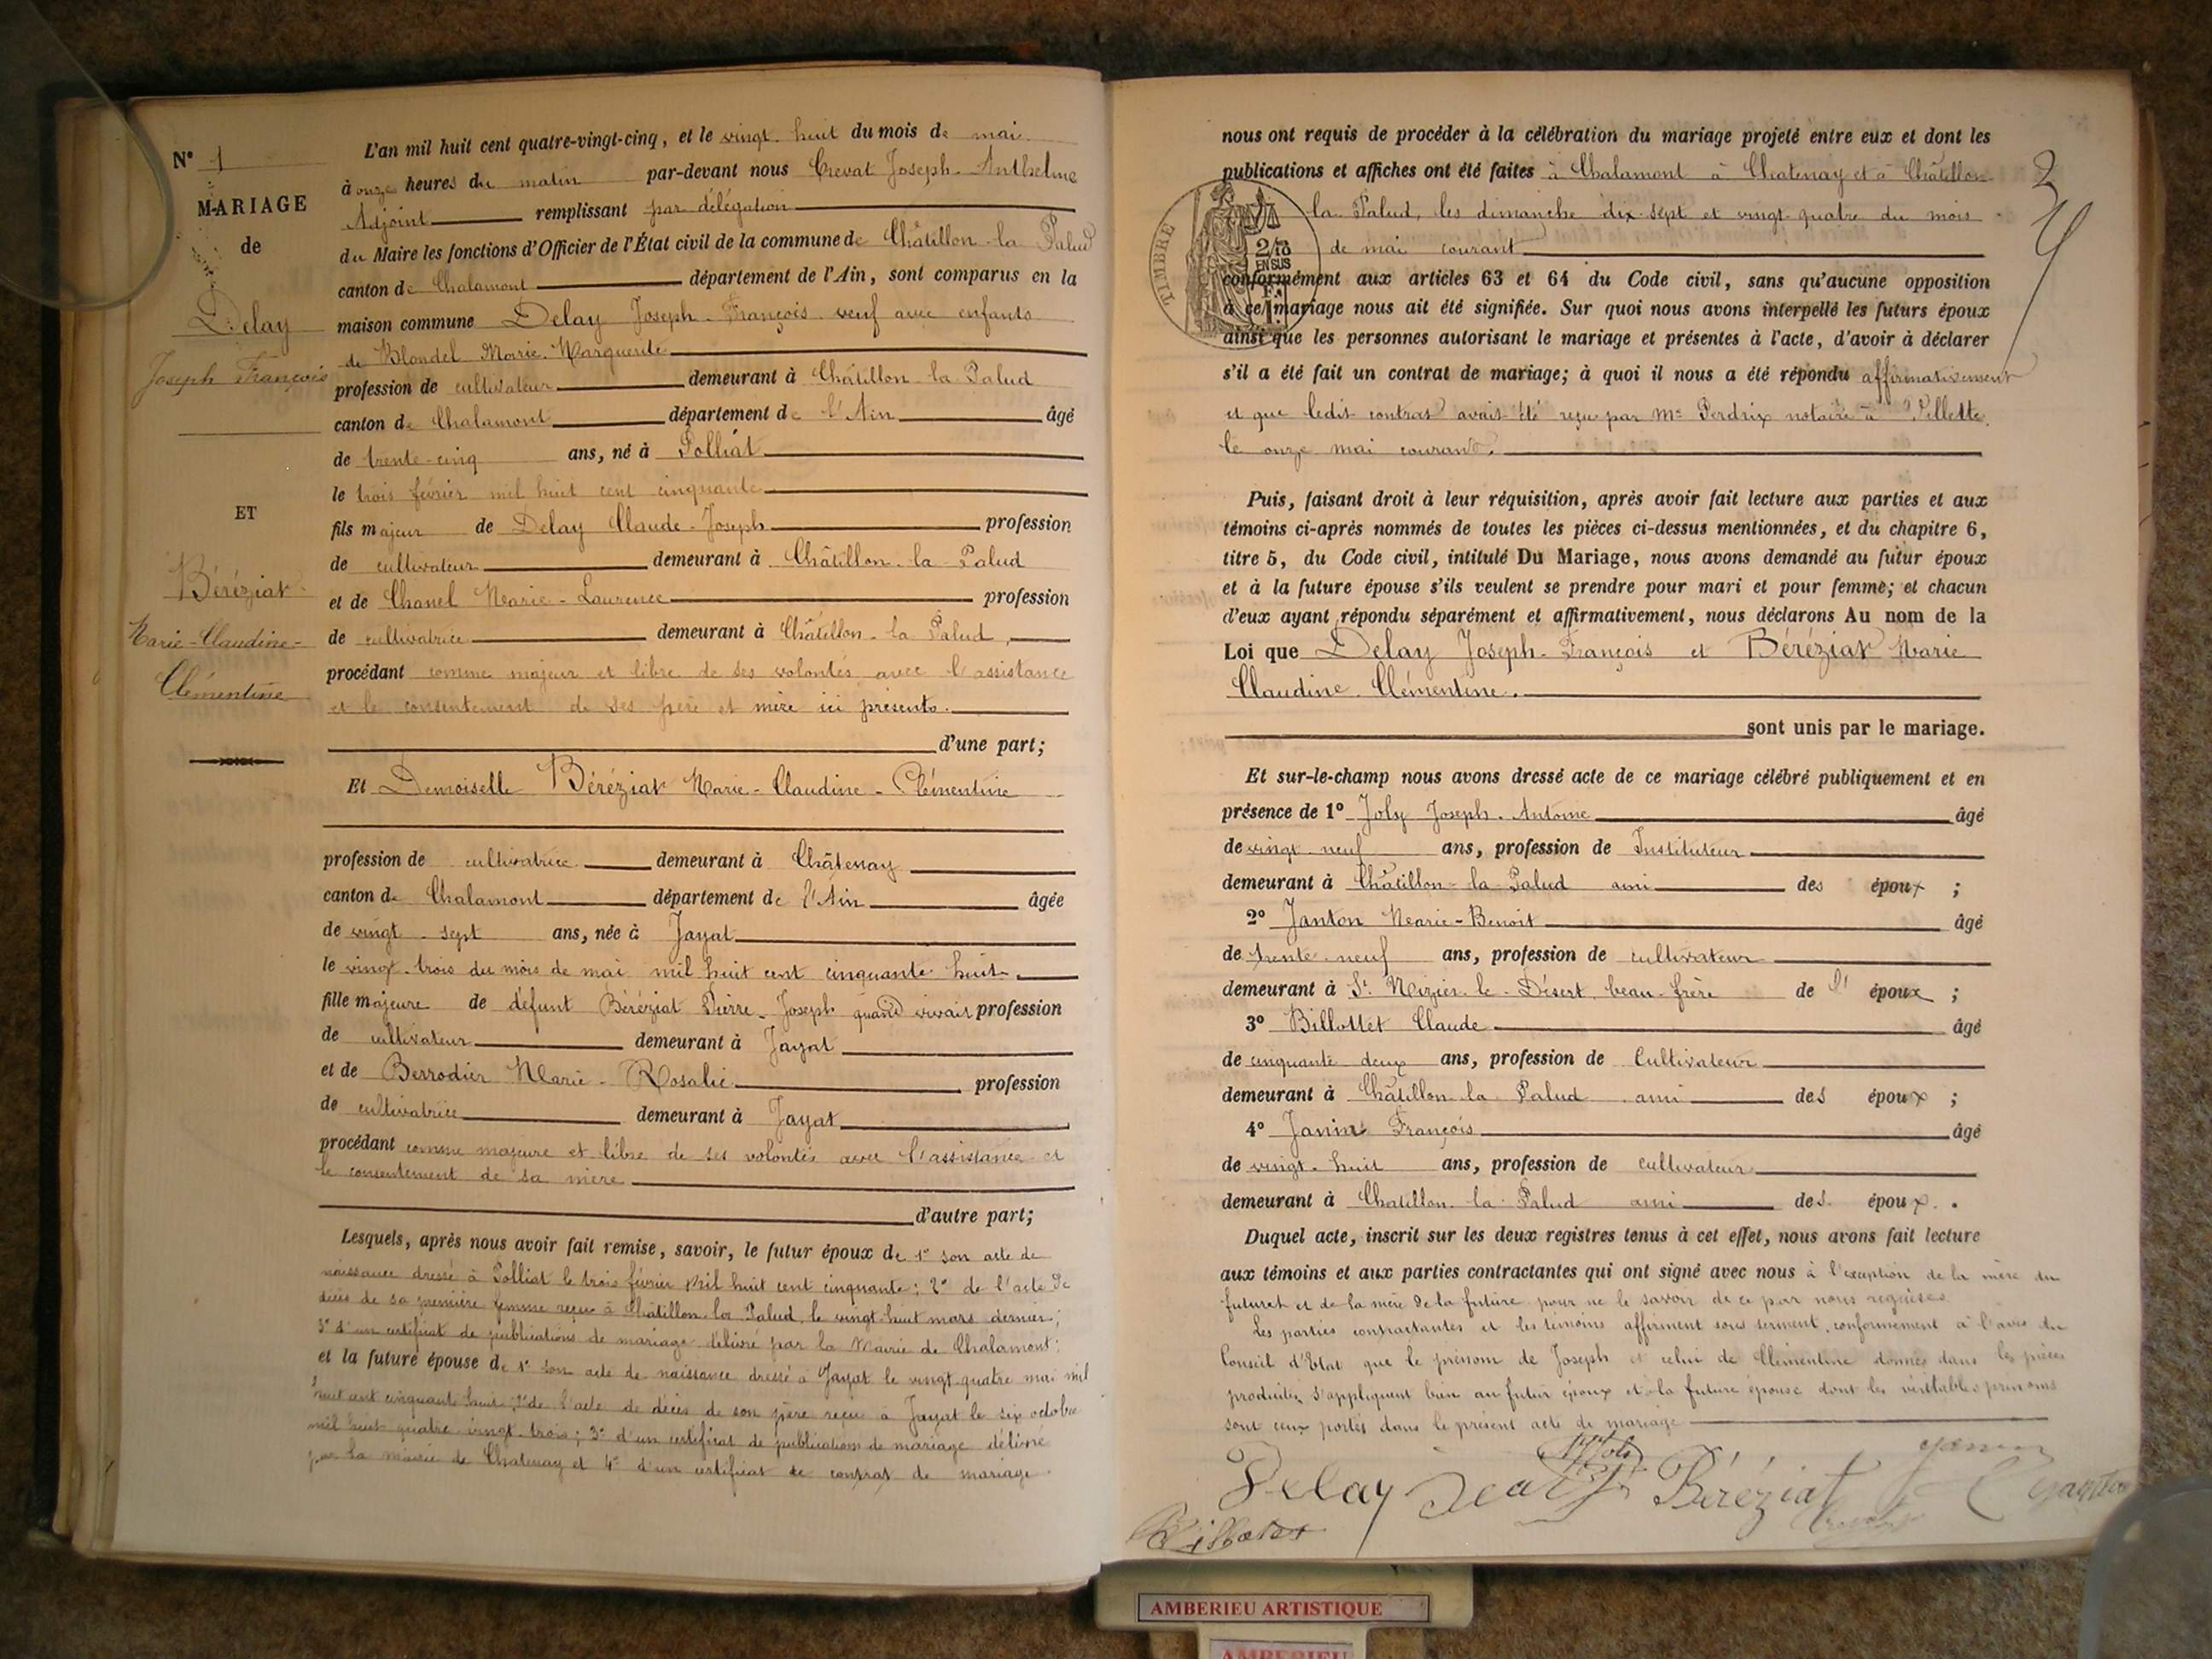 N° 1
MARIAGE
de
Delay
Joseph François
ET
Béréziat
Marie-Claudine-
Clémentine
L'an mil huit cent quatre-vingt-cinq, et le vingt-huit du mois de mai
à onze heures du matin par-devant nous Crevat Joseph-Anthelme
Adjoint remplissant par délégation
du Maire les fonctions d'Officier de l'État civil de la commune de Châtillon-la-Palud
canton de Chalamont département de l'Ain, sont comparus en la
maison commune Delay Joseph-François veuf avec enfants
de Blondel Marie-Marguerite
profession de cultivateur demeurant à Châtillon-la-Palud
canton de Chalamont département de l'Ain âgé
de trente-cinq ans, né à Polliat
le trois février mil huit cent cinquante
fils majeur de Delay Claude-Joseph profession
de cultivateur demeurant à Châtillon-la-Palud
et de Chanel Marie-Laurence profession
de cultivatrice demeurant à Châtillon-la-Palud,
procédant comme majeur et libre de ses volontés avec l'assistance
et le consentement de ses père et mère ici présents.
d'une part;
Et Demoiselle Béréziat Marie-Claudine-Clémentine
profession de cultivatrice demeurant à Châtenay
canton de Chalamont département de l'Ain âgée
de vingt-sept ans, née à Jayat
le vingt-trois du mois de mai mil huit cent cinquante-huit
fille majeure de défunt Béréziat Pierre-Joseph quand vivait profession
de cultivateur demeurant à Jayat
et de Berrodier Marie-Rosalie profession
de cultivatrice demeurant à Jayat
procédant comme majeure et libre de ses volontés avec l'assistance et
le consentement de sa mère
d'autre part;
Lesquels, après nous avoir fait remise, savoir, le futur époux de 1° son acte de
naissance dressé à Polliat le trois février mil huit cent cinquante; 2° de l'acte de
décès de sa première femme reçu à Châtillon-la-Palud, le vingt-huit mars dernier;
3° d'un certificat de publications de mariage délivré par la Mairie de Chalamont;
et la future épouse de 1° son acte de naissance dressé à Jayat le vingt-quatre mai mil
huit cent cinquante-huit; 2° de l'acte de décès de son père reçu à Jayat le six octobre
mil huit quatre-vingt-trois; 3° d'un certificat de publications de mariage délivré
par la mairie de Chatenay et 4° d'un certificat de contrat de mariage.
nous ont requis de procéder à la célébration du mariage projeté entre eux et dont les
publications et affiches ont été faites à Chalamont à Chatenay et à Châtillon-
la-Palud, les dimanche dix-sept et vingt-quatre du mois
de mai courant
TIMBRE
2/10
EN SUS
F.
conformément aux articles 63 et 64 du Code civil, sans qu'aucune opposition
à ce mariage nous ait été signifiée. Sur quoi nous avons interpellé les futurs époux
ainsi que les personnes autorisant le mariage et présentes à l'acte, d'avoir à déclarer
s'il a été fait un contrat de mariage; à quoi il nous a été répondu affirmativement
et que ledit contrat avait été reçu par Me Perdrix notaire à
le onze mai courant.
Puis, faisant droit à leur réquisition, après avoir fait lecture aux parties et aux
témoins ci-après nommés de toutes les pièces ci-dessus mentionnées, et du chapitre 6,
titre 5, du Code civil, intitulé Du Mariage, nous avons demandé au futur époux
et à la future épouse s'ils veulent se prendre pour mari et pour femme; et chacun
d'eux ayant répondu séparément et affirmativement, nous déclarons Au nom de la
Loi que Delay Joseph-François et Béréziat Marie
Claudine-Clémentine.
sont unis par le mariage.
Et sur-le-champ nous avons dressé acte de ce mariage célébré publiquement et en
présence de 1° Joly Joseph-Antoine âgé
de vingt-neuf ans, profession de Instituteur
demeurant à Châtillon-la-Palud ami des époux ;
2° Janton Marie-Benoit âgé
de trente-neuf ans, profession de cultivateur
demeurant à St Nizier-le-Désert beau-frère de l' époux ;
3° Billottet Claude âgé
de cinquante-deux ans, profession de Cultivateur
demeurant à Châtillon-la-Palud ami des époux ;
4° Janin François âgé
de vingt-huit ans, profession de cultivateur
demeurant à Chatillon-la-Palud ami des époux.
Duquel acte, inscrit sur les deux registres tenus à cet effet, nous avons fait lecture
aux témoins et aux parties contractantes qui ont signé avec nous à l'exception de la mère du
futur et de la mère de la future pour ne le savoir de ce par nous requises
Les parties contractantes et les témoins affirment sous serment, conformément à l'avis du
Conseil d'Etat que le prénom de Joseph et celui de Clémentine donnés dans les pièces
produites s'appliquent bien au futur époux et à la future épouse dont les véritables prénoms
sont ceux portés dans le présent acte de mariage
Delay Béréziat Janin Janton
AMBERIEU ARTISTIQUE
AMBERIEU